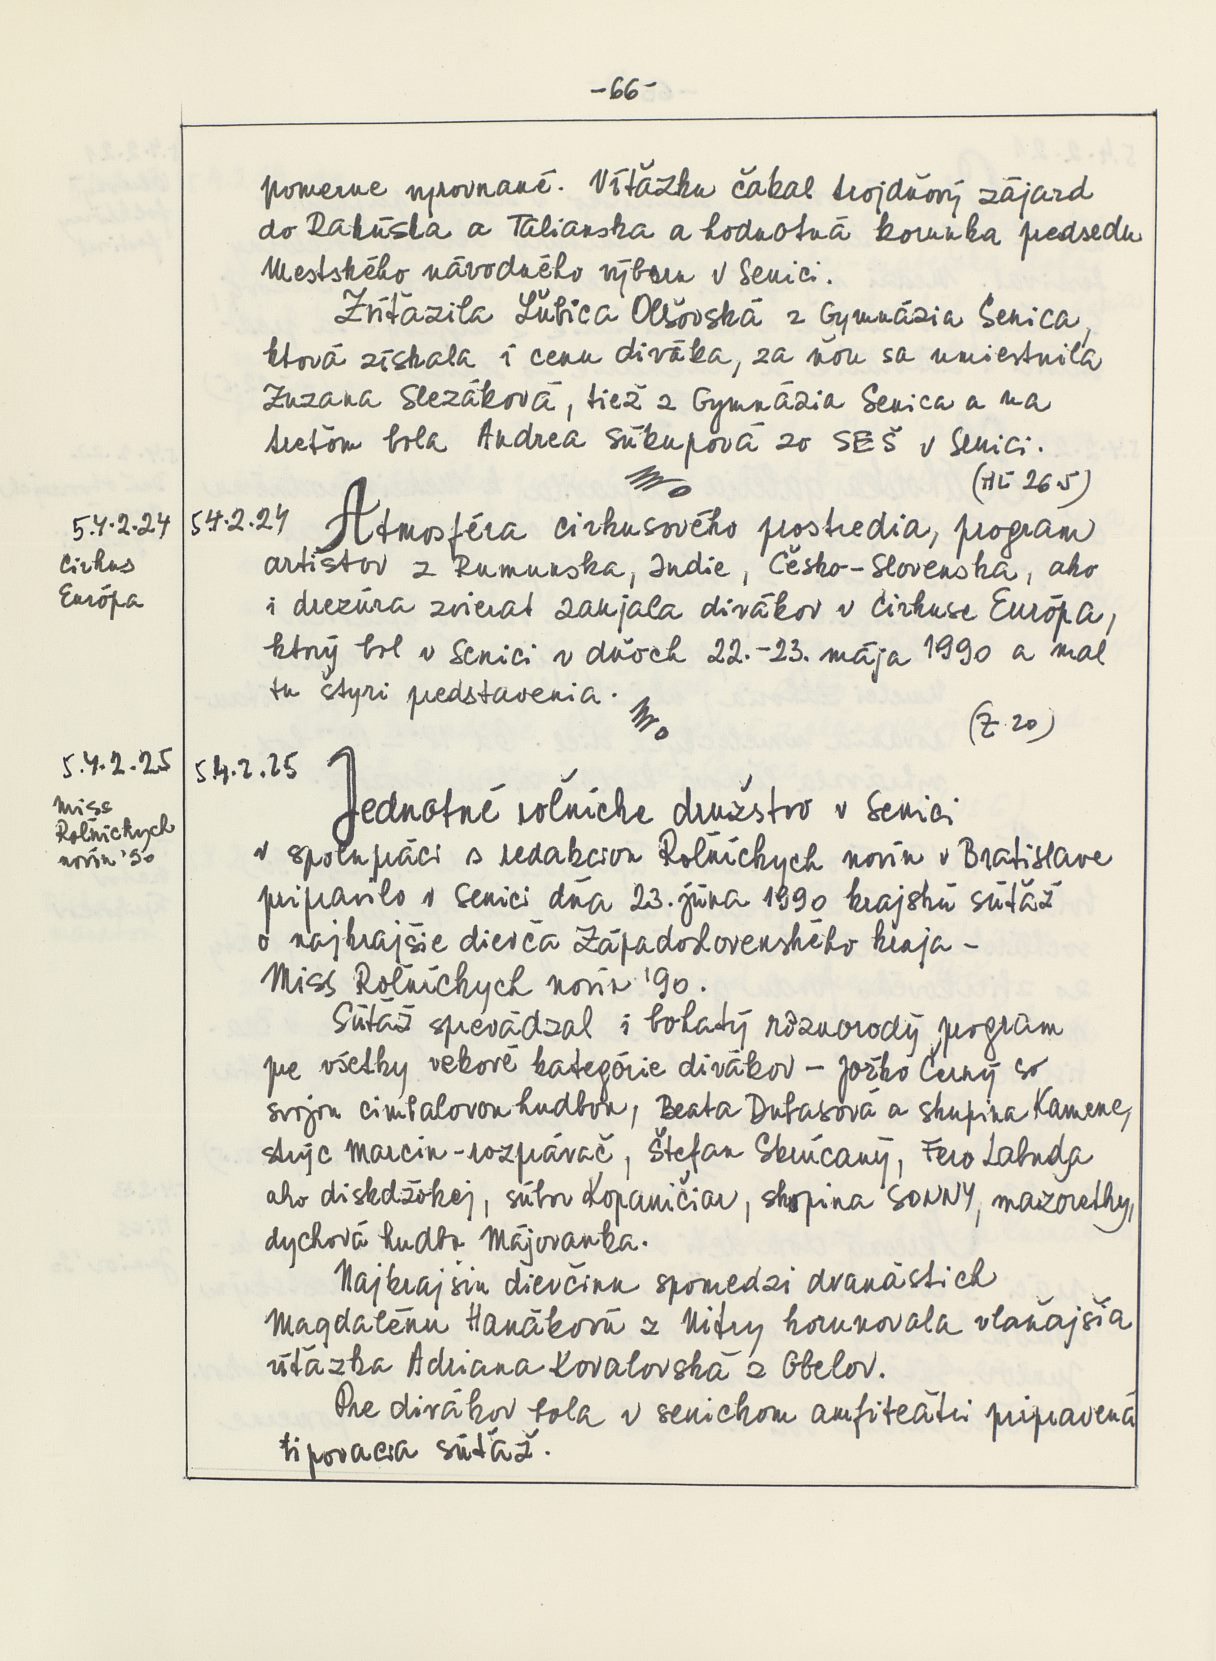 -66-
pomerne vyrovnané. Víťazku čakal trojdňový zájazd
do Rakúska a Talianska a hodnotná korunka predsedu
Mestského národného výboru v Senici.
Zvíťazila Ľubica Olšovská z Gymnázia Senica,
ktorá získala i cenu diváka, za ňou sa umiestnila
Zuzana Slezáková, tiež z Gymnázia Senica a na
treťom bola Andrea Súkupová zo SEŠ v Senici.
(Hl 26.5)
5.4.2.24
Cirkus
Európa
54.2.24 Atmosféra cirkusového prostredia, program
artistov z Rumunska, Indie, Česko-Slovenska, ako
i drezúra zvierat zaujala divákov v Cirkuse Európa,
ktorý bol v Senici v dňoch 22.-23. mája 1990 a mal
tu štyri predstavenia.
(Z 20)
5.4.2.25
Miss
Roľníckych
novín '90
54.2.25 Jednotné roľnícke družstvo v Senici
v spolupráci s redakciou Roľníckych novín v Bratislave
pripravilo v Senici dňa 23. júna 1990 krajskú súťaž
o najkrajšie dievča Západoslovenského kraja -
Miss Roľníckych novín '90.
Súťaž sprevádzal i bohatý rôznorodý program
pre všetky vekové kategórie divákov - Jožko Černý so
svojou cimbalovou hudbou, Beata Dubasová a skupina Kamene,
strýc Marcin - rozprávač, Štefan Skrúcaný, Fero Labuda
ako diskdžokej, súbor Kopaničiar, skupina SONNY, mazoretky,
dychová hudba Májovanka.
Najkrajšiu dievčinu spomedzi dvanástich
Magdalénu Hanákovú z Nitry korunovala vlaňajšia
víťazka Adriana Kovalovská z Gbelov.
Pre divákov bola v senickom amfiteátri pripravená
tipovacia súťaž.